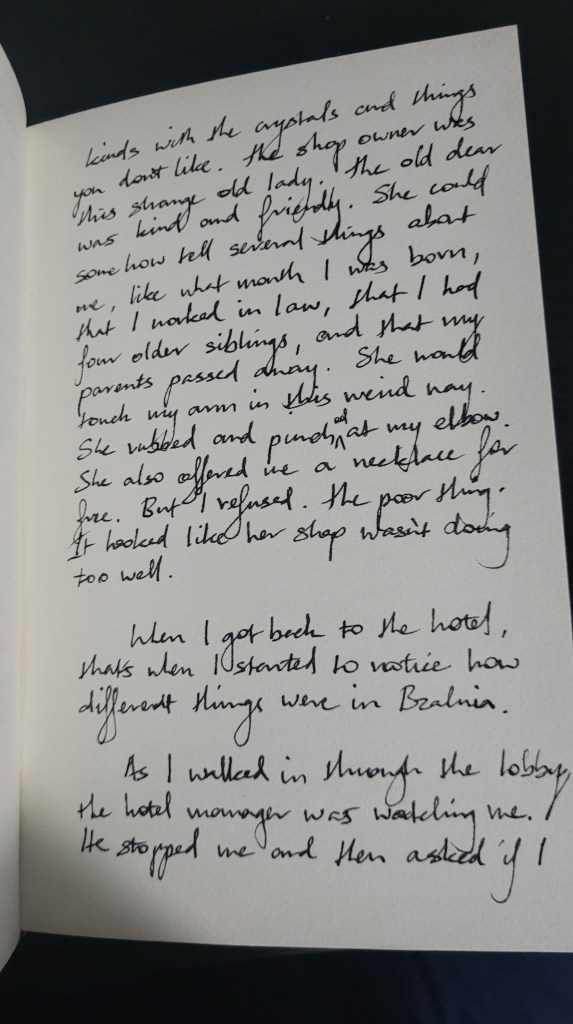 kinds with the crystals and things
you don't like. The shop owner was
this strange old lady. The old dear
was kind and friendly. She could
somehow tell several things about
me, like what month I was born,
that I worked in law, that I had
four older siblings, and that my
parents passed away. She would
touch my arm in this weird way.
She rubbed and pinched at my elbow.
She also offered me a necklace for
free. But I refused. The poor thing.
It looked like her shop wasn't doing
too well.
When I got back to the hotel,
that's when I started to notice how
different things were in
As I walked in through the lobby,
the hotel manager was watching me.
He stopped me and then asked if I